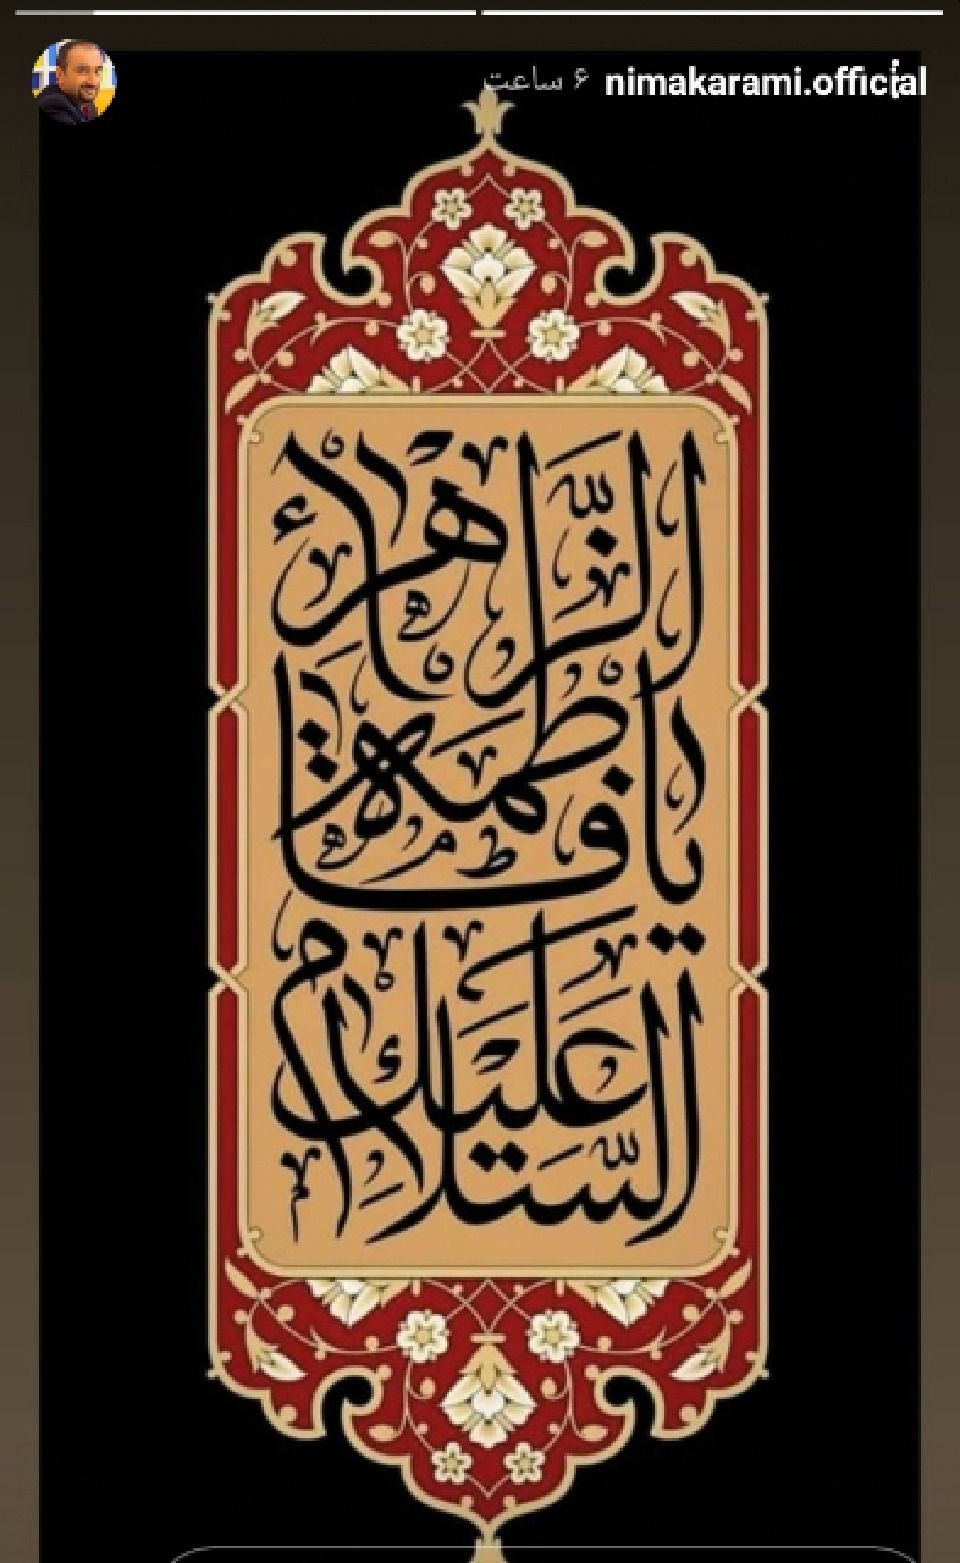 nimakarami.official ۶ ساعت
السَّلامُ عَلَيْكِ
يا فاطِمَةُ
الزَّهراءُ